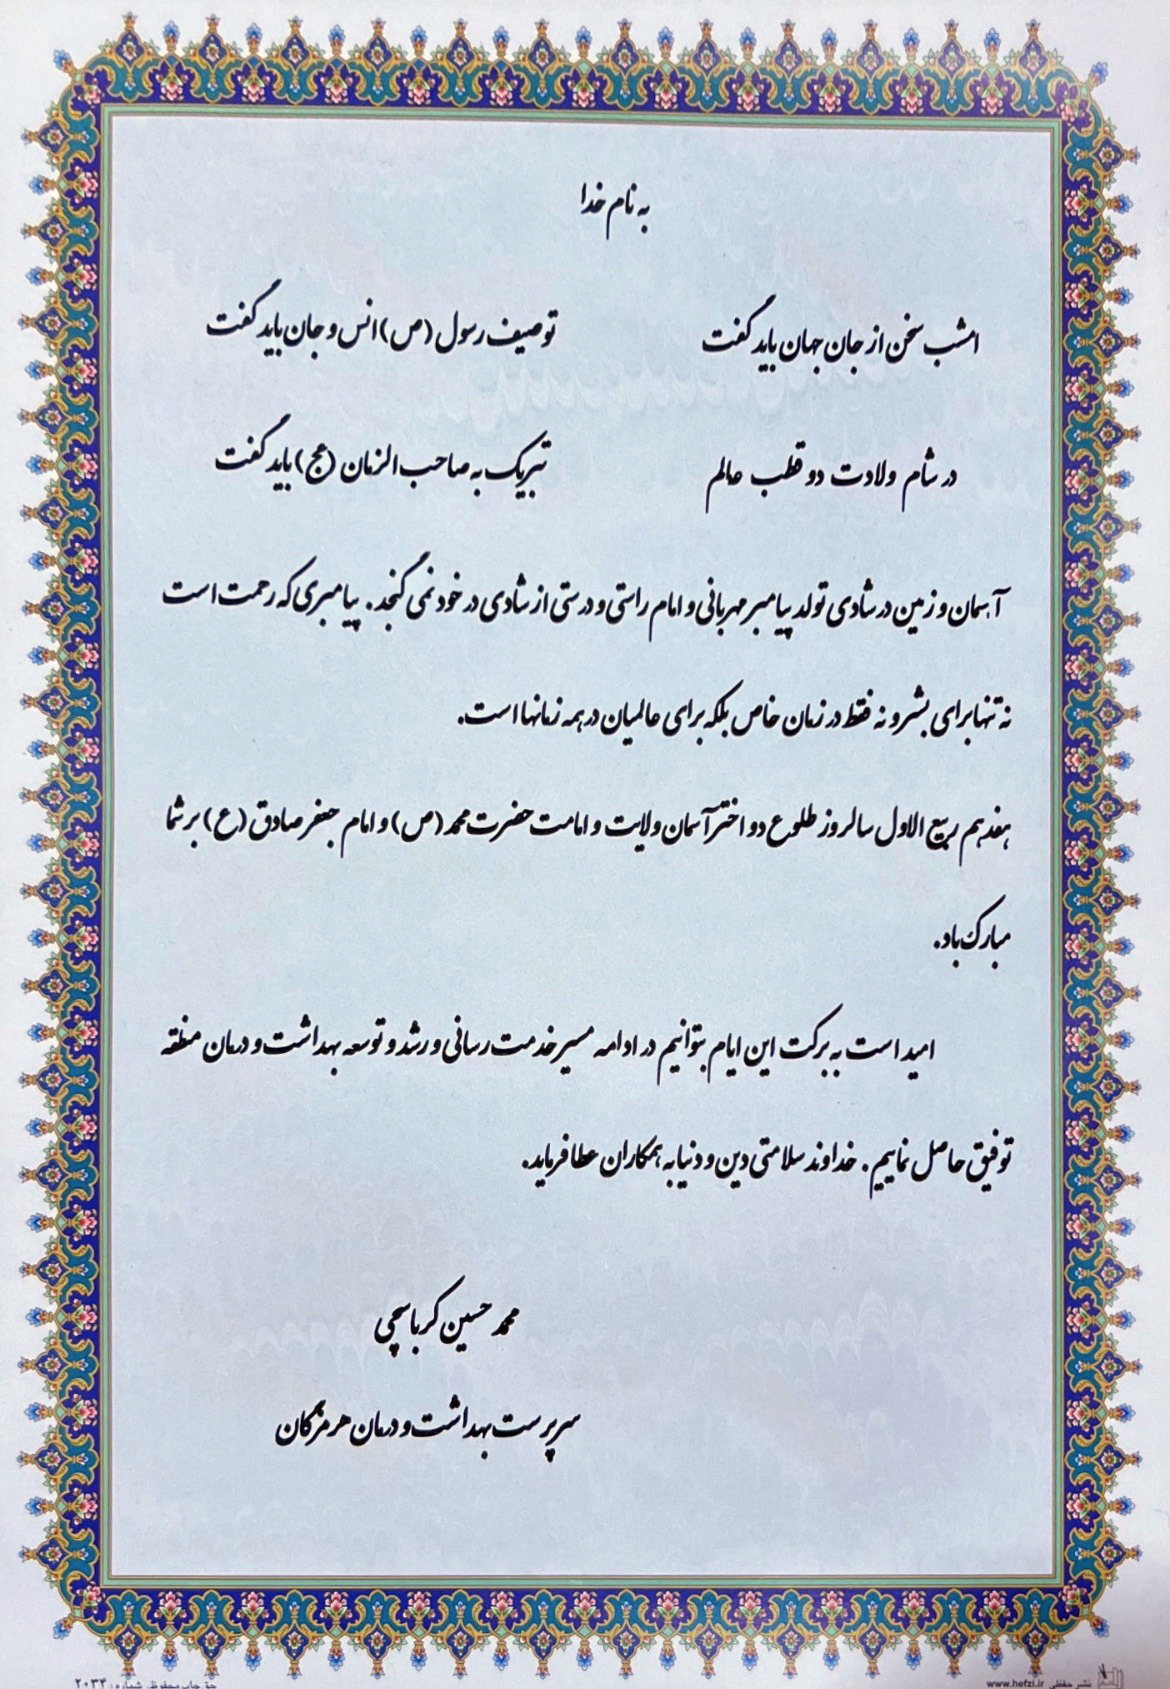 به نام خدا
امشب سخن از جان جهان باید گفت توصیف رسول (ص) انس و جان باید گفت
در شام ولادت دو قطب عالم تبریک به صاحب الزمان (عج) باید گفت
آسمان و زمین در شادی تولد پیامبر مهربانی و امام راستی و درستی از شادی در خود نمی گنجد. پیامبری که رحمت است
نه تنها برای بشر و نه فقط در زمان خاص بلکه برای عالمیان در همه زمانها است.
هفدهم ربیع الاول سالروز طلوع دو اختر آسمان ولایت و امامت حضرت محمد (ص) و امام جعفر صادق (ع) بر شما
مبارک باد.
امید است به برکت این ایام بتوانیم در ادامه مسیر خدمت رسانی و رشد و توسعه بهداشت و درمان منطقه
توفیق حاصل نماییم. خداوند سلامتی دین و دنیا به همکاران عطا فرماید.
محمد حسین کرباسچی
سرپرست بهداشت و درمان هرمزگان
نشر حفظی www.hefzi.ir
حق چاپ محفوظ. شماره: ۲۰۳۴